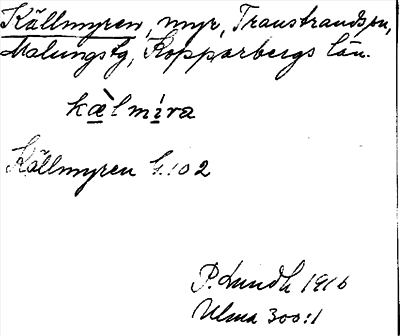 Källmyren, myr, Transtrands sn,
Malungs tg, Kopparbergs län.
kæ̀lmi̇́ra
Källmyren G. 102
P. Lundh 1916
Ulma 300:1